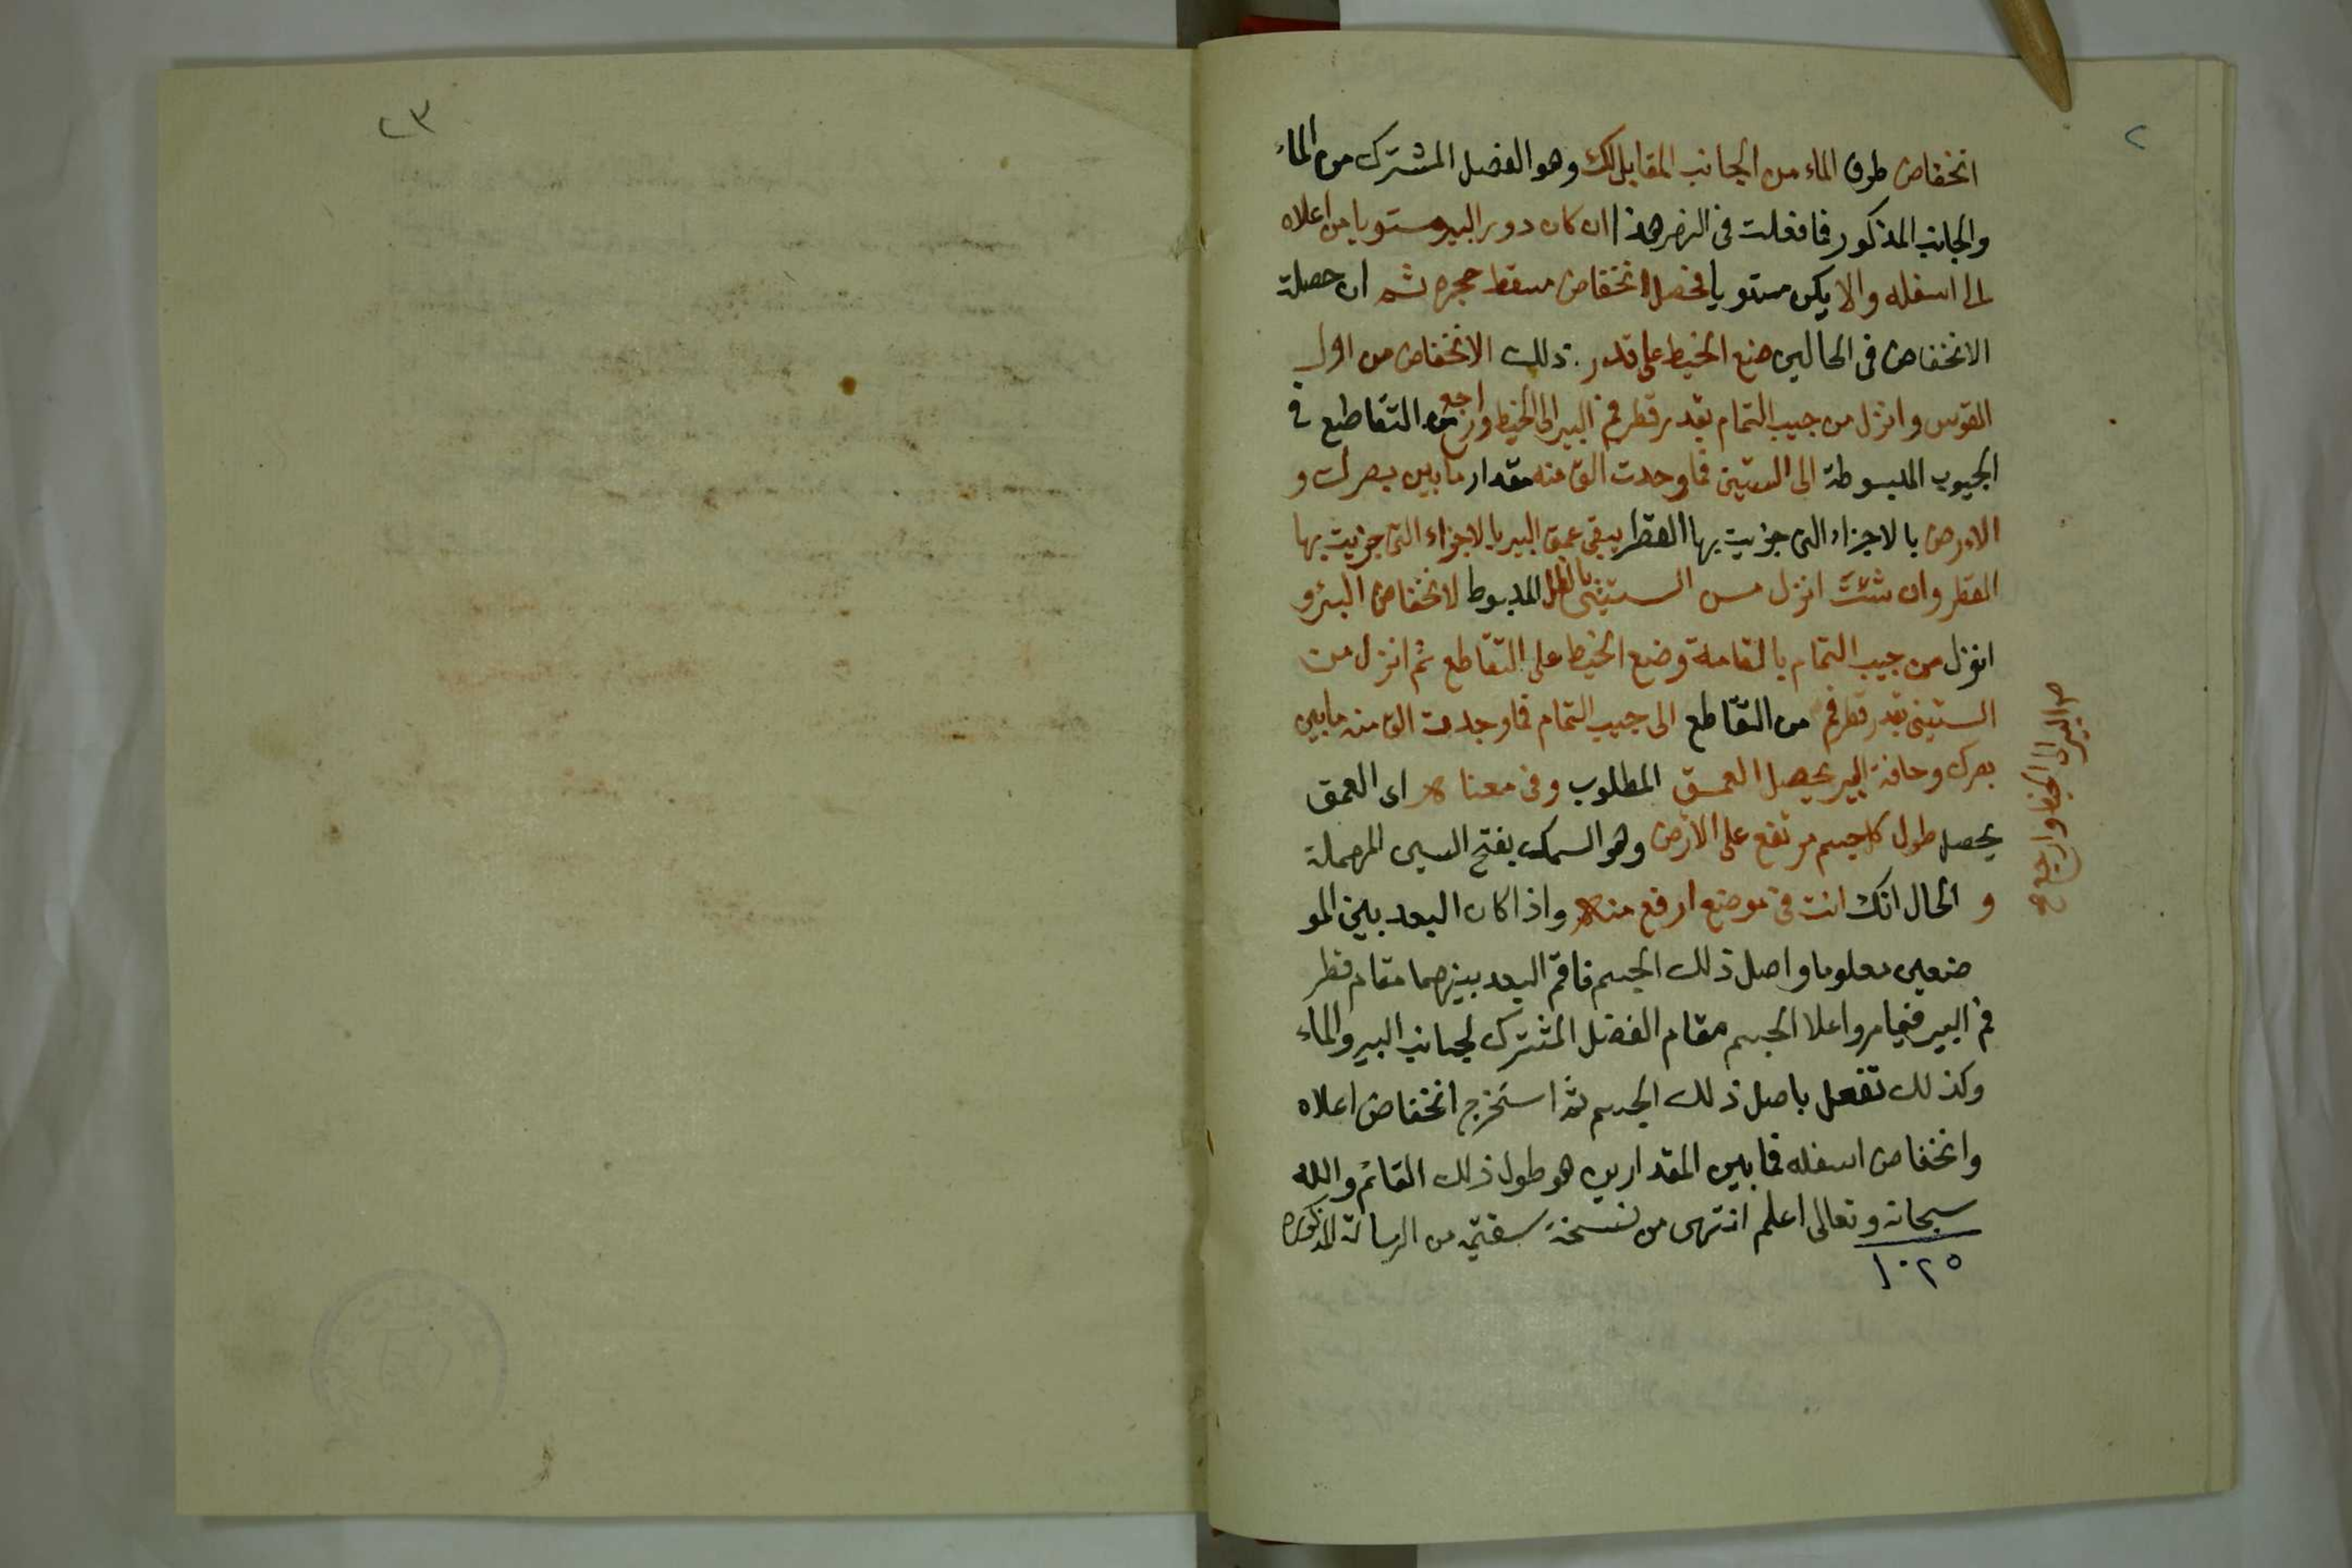 ٢
انخفاض طرف الماء من الجانب المقابل لك وهو الفصل المشترك من الماء
والجانب المذكور فما فعلت فى النهر هذا ان كان دور البير مستويا من اعلاه
الى اسفله والا يكن مستويا فحصل انخفاض مسقط حجره ثم ان حصلة
الانخفاض فى الحالين ضع الخيط على قدر ذلك الانخفاض من اول
القوس وانزل من جيب التمام بقدر قطر فم البير الى الخيط وارجع من التقاطع فى
الجيوب المبسوطة الى الستين فما وجدت الق منه مقدار ما بين بصرك و
الارض بالاجزاء التى جزيت بها القطر يبقى عمق البير بالاجزاء التى جزيت بها
القطر وان شئت انزل من الستينى بالظل المبسوط لانخفاض البئر و
انزل من جيب التمام بالقامة وضع الخيط على التقاطع ثم انزل من
الستينى بقدر قطر فم من التقاطع الى جيب التمام فما وجدت الق منه ما بين
بصرك وحافة البير يحصل العمق المطلوب وفى معناه اى العمق
يحصل طول كل جسم مرتفع على الارض وهو السمك بفتح السين المهملة
و الحال انك انت فى موضع ارفع منه واذا كان البعد بين المو
ضعين معلوما واصل ذلك الجسم فاقم البعد بينهما مقام قطر
فم البير فيما مر واعلا الجسم مقام الفصل المشترك لجانب البير والماء
وكذلك تفعل باصل ذلك الجسم ثم استخرج انخفاض اعلاه
وانخفاض اسفله فما بين المقدارين هو طول ذلك القائم والله
سبحانه وتعالى اعلم انتهى من نسخة سقيمة من الرسالة المذكورة
١٠٢٥
البير الى الخيط وارجع صح
٢٣